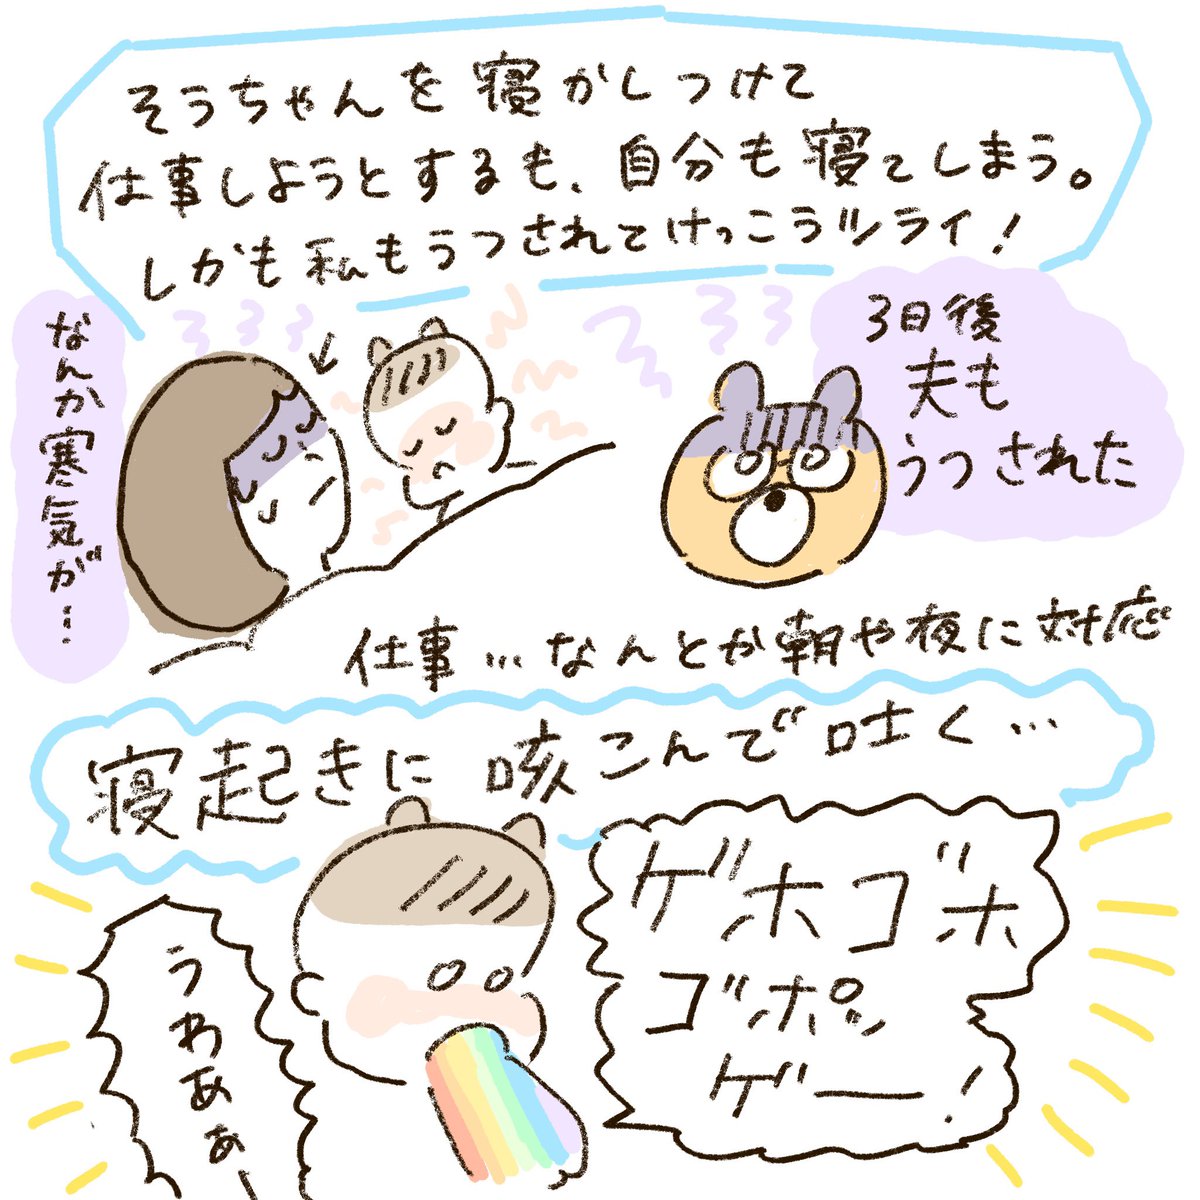 そうちゃんを寝かしつけて
仕事しようとするも、自分も寝てしまう。
しかも私もうつされてけっこうツライ!
なんか寒気が…
3日後
夫も
うつされた
仕事…なんとか朝や夜に対応
寝起きに咳こんで吐く…
ゲホゴホ
ゴポッ
ゲー!
うわあぁー